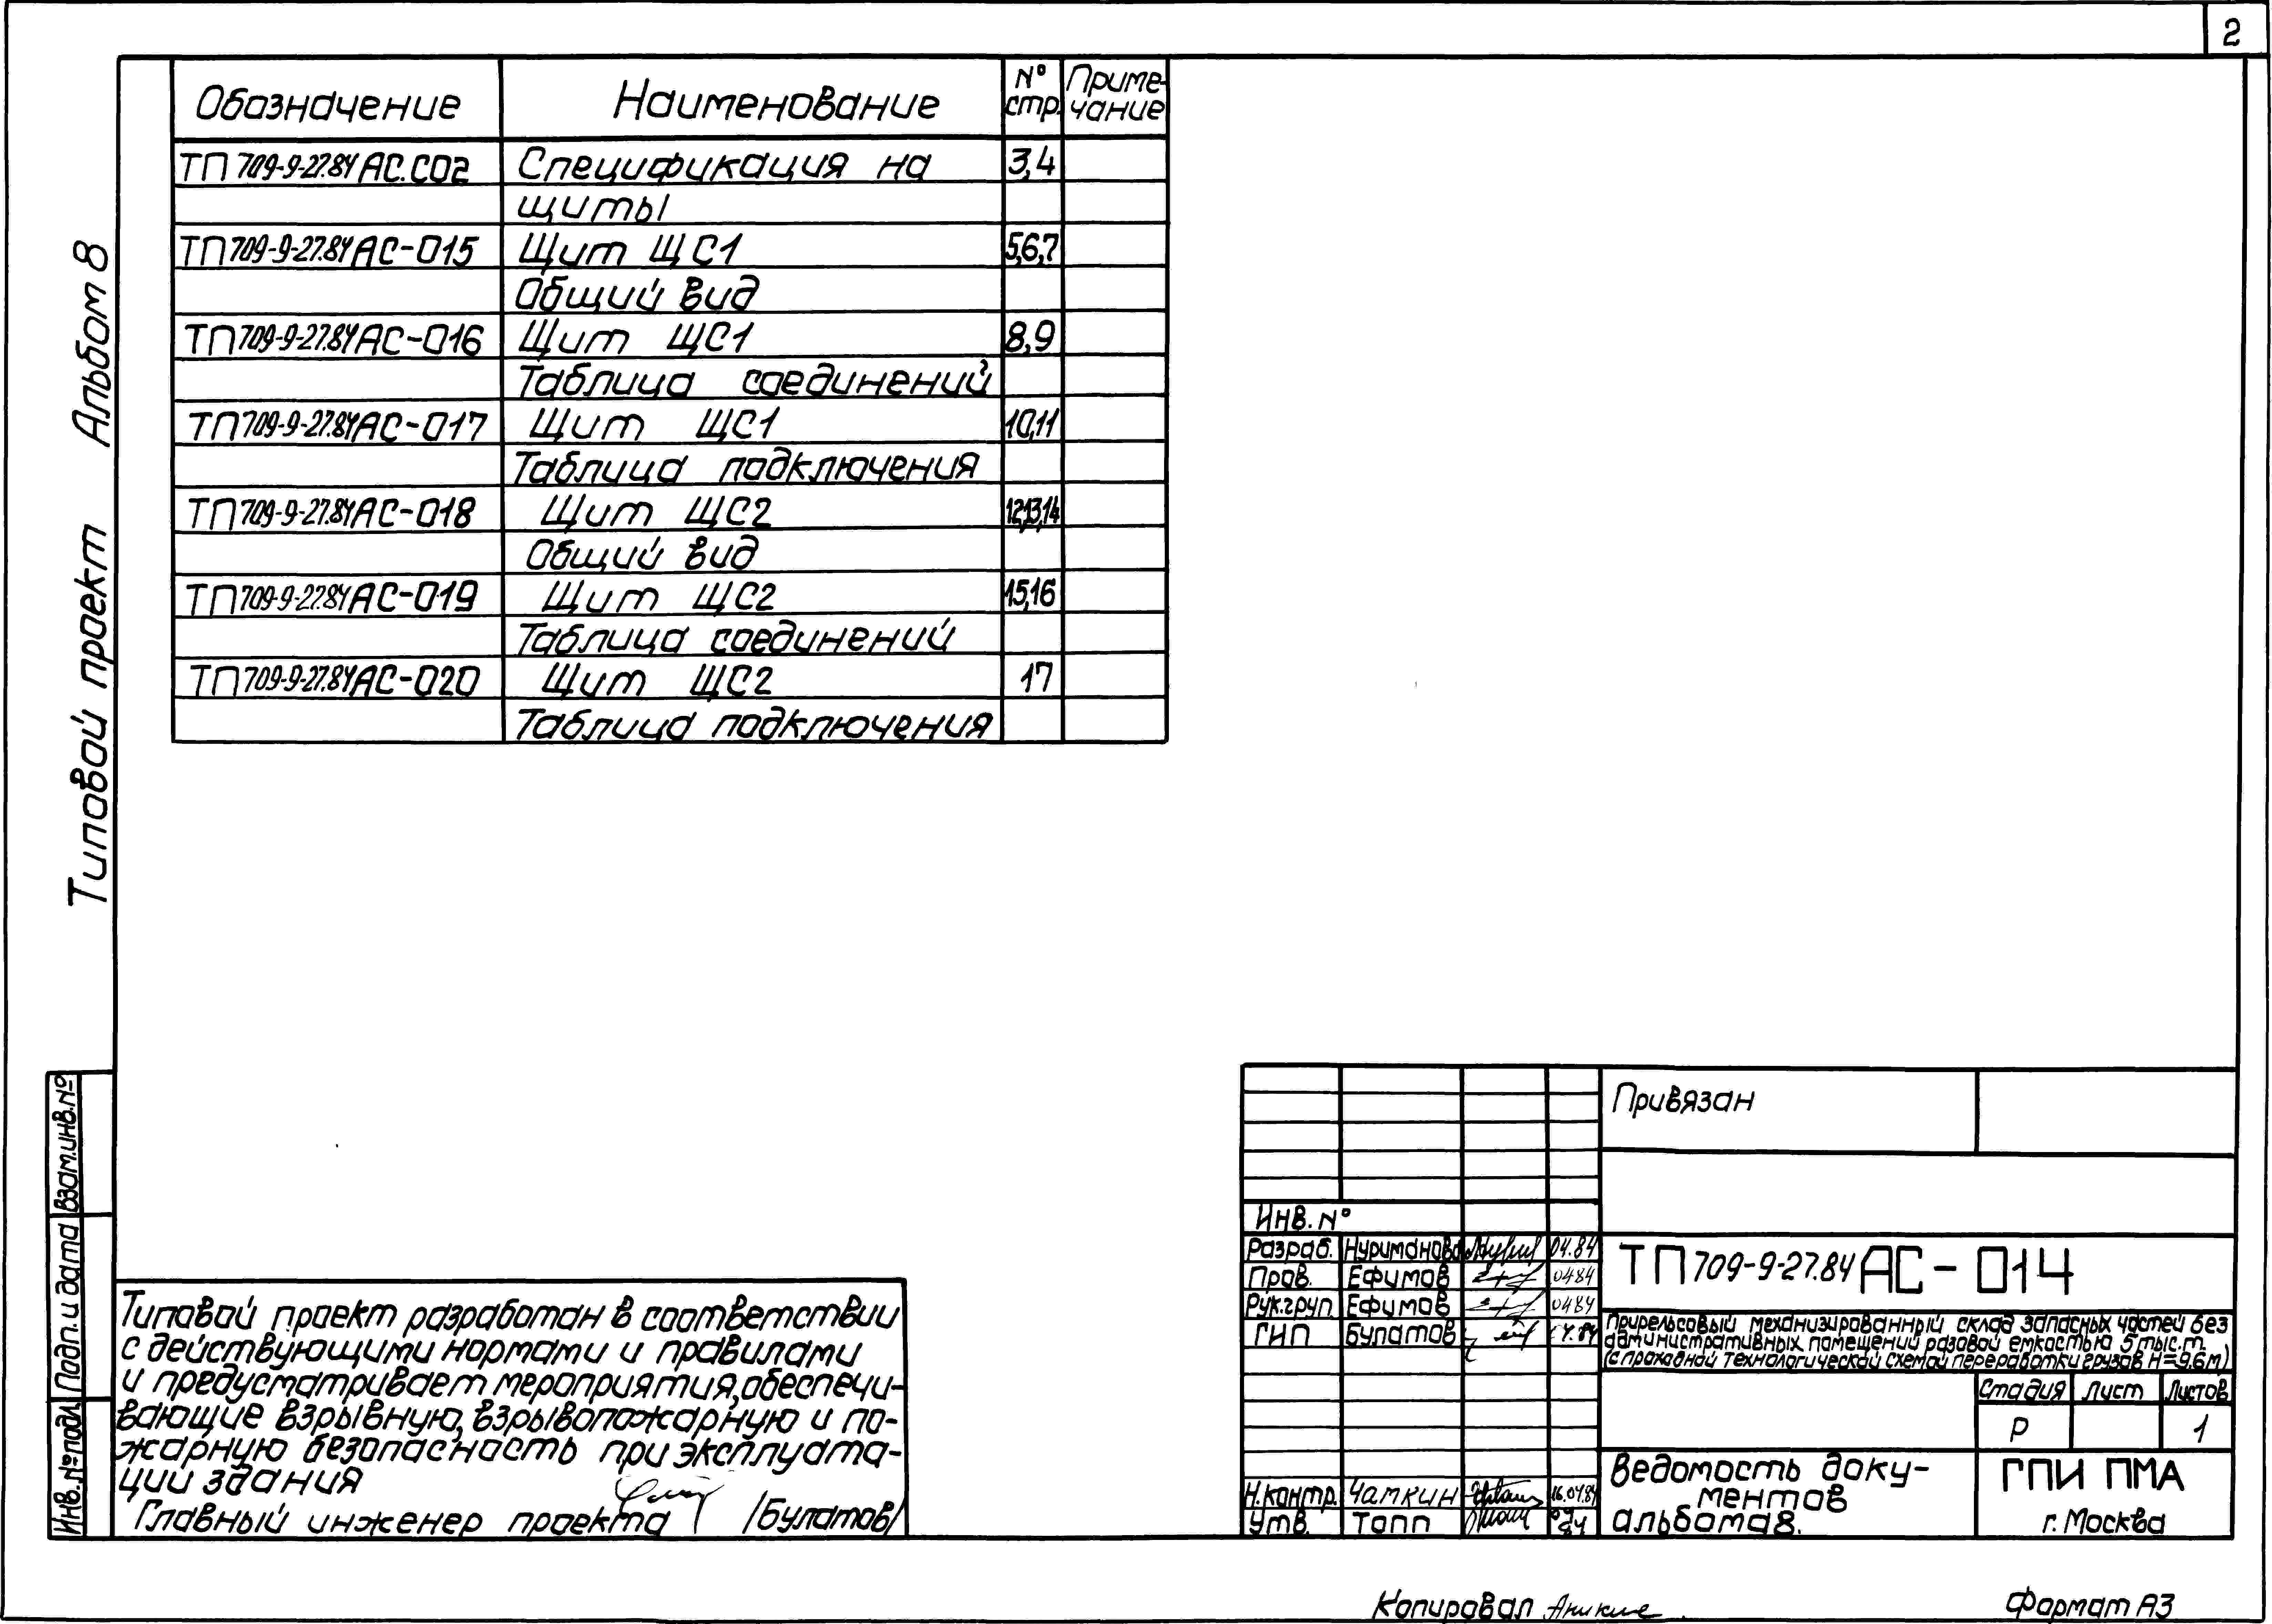 2
Типовой проект Альбом 8
Обозначение Наименование № стр. Приме-чание
ТП 709-9-27.84 АС.СО2 Спецификация на 3,4
щиты
ТП 709-9-27.84 АС-015 Щит ЩС1 5,6,7
Общий вид
ТП 709-9-27.84 АС-016 Щит ЩС1 8,9
Таблица соединений
ТП 709-9-27.84 АС-017 Щит ЩС1 10,11
Таблица подключения
ТП 709-9-27.84 АС-018 Щит ЩС2 12,13,14
Общий вид
ТП 709-9-27.84 АС-019 Щит ЩС2 15,16
Таблица соединений
ТП 709-9-27.84 АС-020 Щит ЩС2 17
Таблица подключения
Взам.инв.№
Подп. и дата
Инв.№ подл.
Типовой проект разработан в соответствии
с действующими нормами и правилами
и предусматривает мероприятия, обеспечи-
вающие взрывную, взрывопожарную и по-
жарную безопасность при эксплуата-
ции здания
Главный инженер проекта /Булатов/
Привязан
Инв. №
Разраб. Нуриманова 04.84
Пров. Ефимов 0484
Рук.груп. Ефимов 0484
ГИП Булатов
Н.контр. Чамкин 16.04.84
Утв. Топп
ТП 709-9-27.84 АС-014
Прирельсовый механизированный склад запасных частей без
административных помещений разовой емкостью 5 тыс.т.
(с проходной технологической схемой переработки грузов Н=9.6м)
Стадия Лист Листов
Р 1
Ведомость доку-
ментов
альбома 8.
ГПИ ПМА
г. Москва
Копировал Аникие
Формат А3